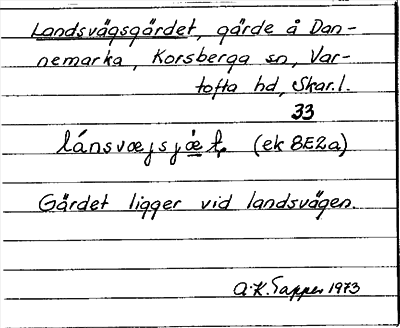 Landsvägsgärdet, gärde å Dan-
nemarka, Korsberga sn, Var-
tofta hd, Skar.l.
33
(ek 8E2a)
Gärdet ligger vid landsvägen.
A.K. Tapper 1973